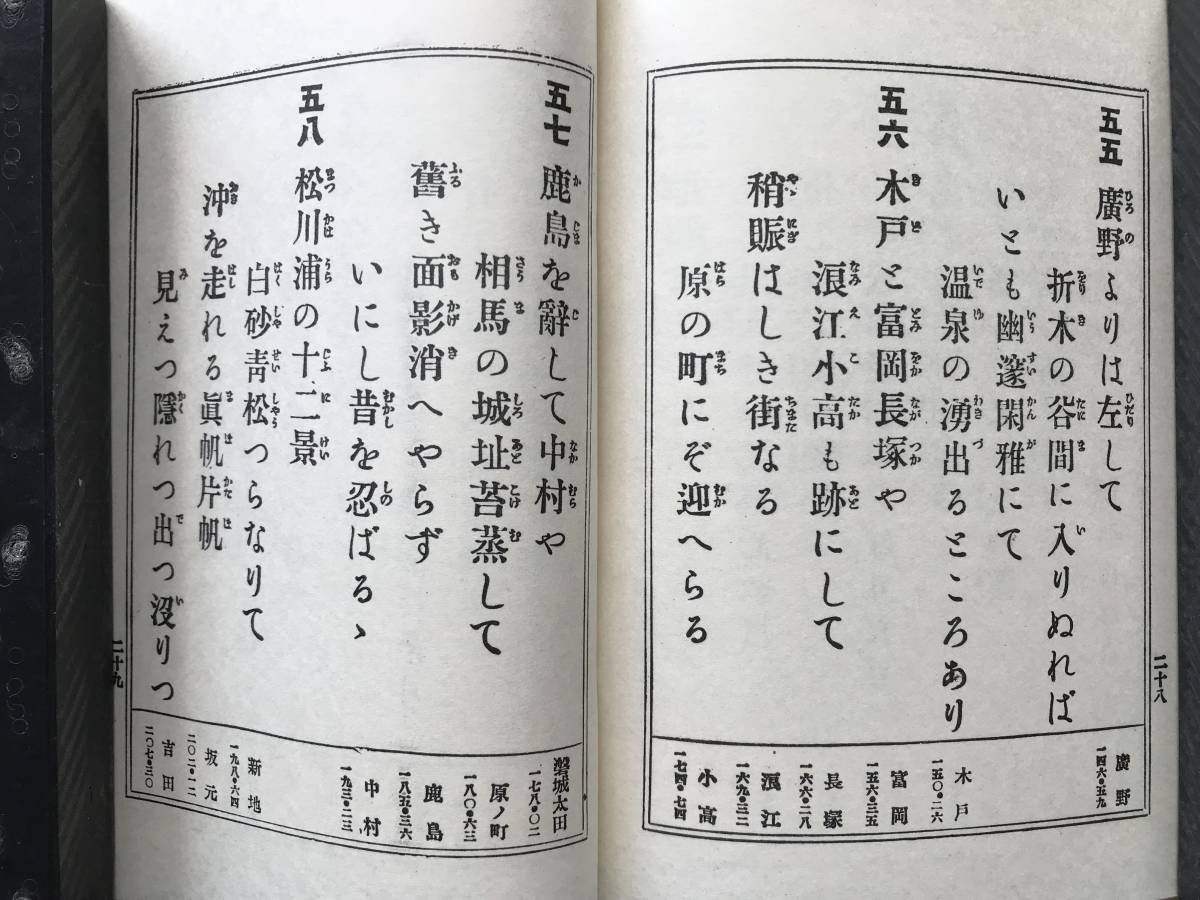 五五 廣野よりは左して
折木の谷間に入りぬれば
いとも幽邃閑雅にて
温泉の湧出るところあり
五六 木戸と富岡長塚や
浪江小高も跡にして
稍賑はしき街なる
原の町にぞ迎へらる
廣野
一四六・五九
木戸
一五〇・二六
富岡
一五六・三五
長塚
一六六・二八
浪江
一六九・三二
小高
一七四・七四
二十八
五七 鹿島を辭して中村や
相馬の城址苔蒸して
舊き面影消へやらず
いにし昔を忍ばるゝ
五八 松川浦の十二景
白砂靑松つらなりて
沖を走れる眞帆片帆
見えつ隱れつ出つ沒りつ
磐城太田
一七八・〇二
原ノ町
一八〇・六三
鹿島
一八五・三六
中村
一九三・二三
新地
一九八・六四
坂元
二〇二・一二
吉田
二〇七・三〇
二十九